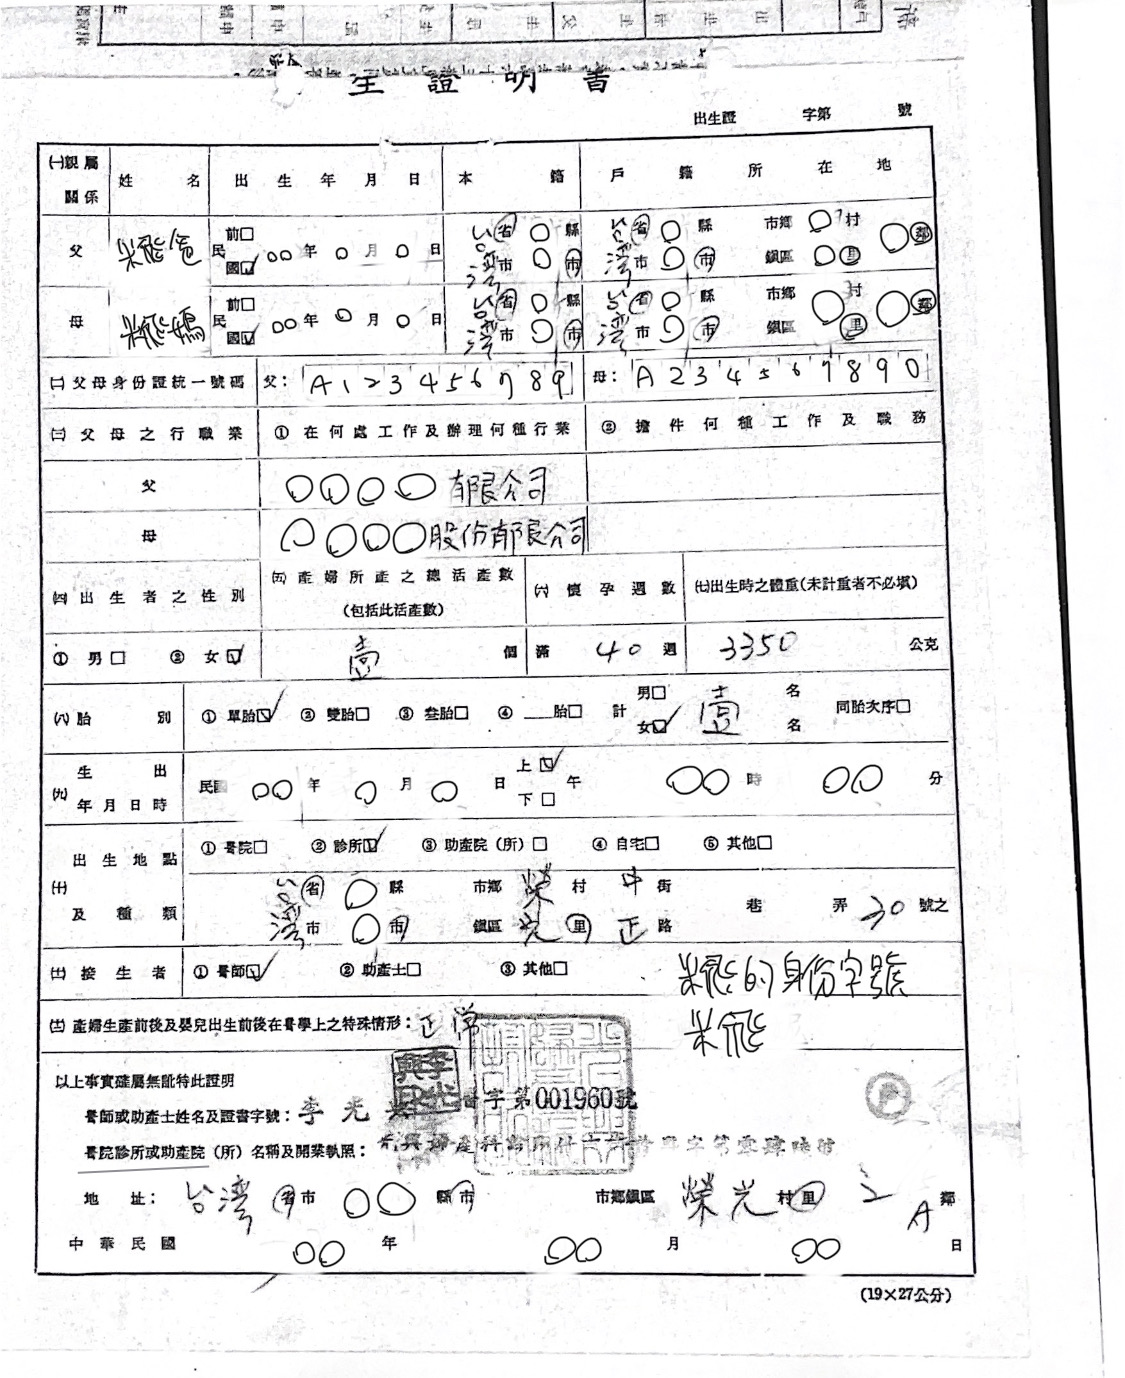 生證明書
出生證 字第 號
㈠親屬關係 姓名 出生年月日 本籍 戶籍所在地
父 米飛爸 民 前□ 國☑ ○○年○月○日 台灣 省市 ○○ 縣市 台灣 省市 ○○ 縣市 市鄉鎮區 ○○ 村里 ○鄰
母 米飛媽 民 前□ 國☑ ○○年○月○日 台灣 省市 ○○ 縣市 台灣 省市 ○○ 縣市 市鄉鎮區 ○ 村里 ○鄰
㈡父母身份證統一號碼 父: A123456789 母: A234567890
㈢父母之行職業 ①在何處工作及辦理何種行業 ②擔件何種工作及職務
父 ○○○○有限公司
母 ○○○○股份有限公司
㈣出生者之性別 ㈤產婦所產之總活產數(包括此活產數) ㈥懷孕週數 ㈦出生時之體重(未計重者不必填)
①男□ ②女☑ 壹 個 滿 40 週 3350 公克
㈧胎別 ①單胎☑ ②雙胎□ ③叁胎□ ④__胎□ 計 男□ 女☑ 壹 名名 同胎次序□
㈨生出年月日時 民國 ○○年 ○月○日 上☑下□午 ○○時 ○○分
㈩出生地點及種類 ①醫院□ ②診所☑ ③助產院(所)□ ④自宅□ ⑤其他□
台灣 省市 ○○ 縣市 市鄉鎮區 榮光 村里 中正 街路 巷 弄 30 號之
㈩㈠接生者 ①醫師☑ ②助產士□ ③其他□ 米飛的身份字號
㈩㈡產婦生產前後及嬰兒出生前後在醫學上之特殊情形:正常 米飛
以上事實確屬無訛特此證明
醫師或助產士姓名及證書字號:李光興 醫字第001960號
李光興印
醫院診所或助產院(所)名稱及開業執照: 光興婦產科診所
地址: 台灣 省市 ○○ 縣市 市鄉鎮區 榮光 村里 鄰
中華民國 ○○年 ○○月 ○○日
(19×27公分)